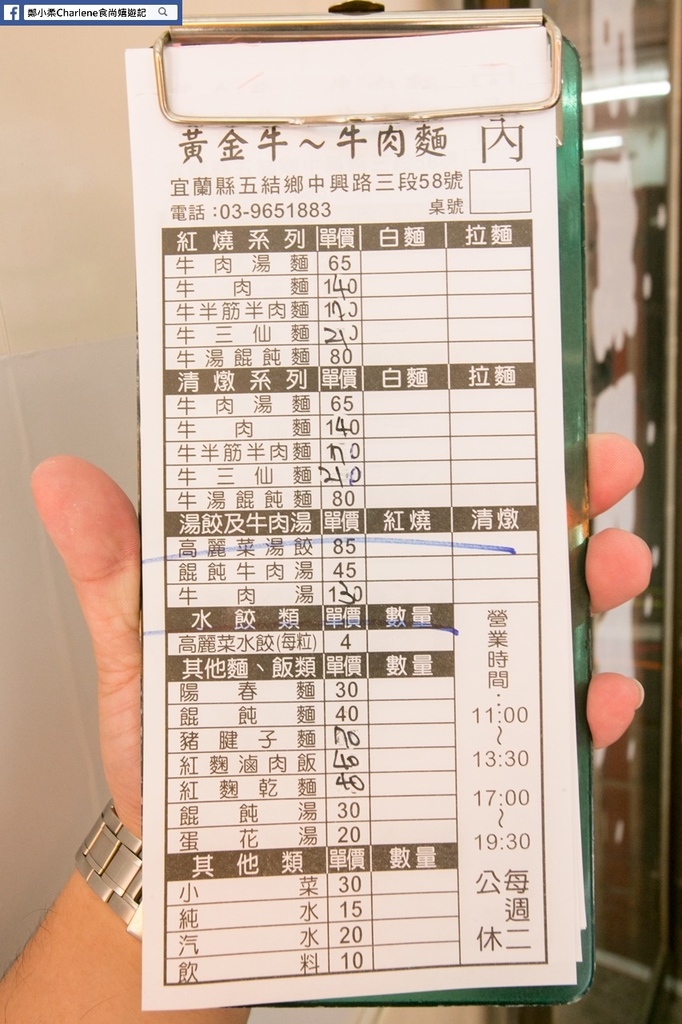 鄭小柔Charlene食尚嬉遊記
黃金牛~牛肉麵 內
宜蘭縣五結鄉中興路三段58號
電話:03-9651883 桌號
紅燒系列 單價 白麵 拉麵
牛肉湯麵 65
牛肉麵 140
牛半筋半肉麵 170
牛三仙麵 210
牛湯餛飩麵 80
清燉系列 單價 白麵 拉麵
牛肉湯麵 65
牛肉麵 140
牛半筋半肉麵 170
牛三仙麵 210
牛湯餛飩麵 80
湯餃及牛肉湯 單價 紅燒 清燉
高麗菜湯餃 85
餛飩牛肉湯 45
牛肉湯 130
水餃類 單價 數量
高麗菜水餃(每粒) 4
其他麵、飯類 單價 數量
陽春麵 30
餛飩麵 40
豬腱子麵 70
紅麴滷肉飯
紅麴乾麵
餛飩湯 30
蛋花湯 20
其他類 單價 數量
小菜 30
純水 15
汽水 20
飲料 10
營業時間:
11:00
~
13:30
17:00
~
19:30
每週二
公休